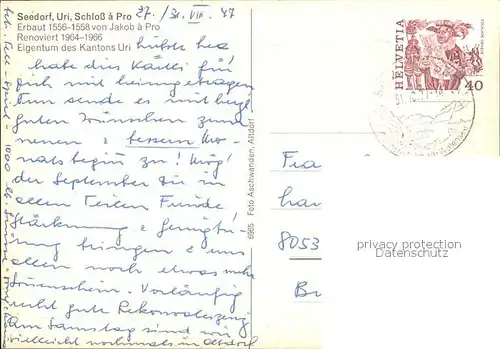 Seedorf, Uri, Schloß à Pro
Erbaut 1556–1558 von Jakob à Pro
Renoviert 1964–1966
Eigentum des Kantons Uri
27. / 31. VIII. 87
habe dies Kärtli für
dich mit heimgetragen
nun sende es mit herzl.
guten Wünschen zum
neuen & bessern Mo-
natsbeginn zu! Mög'
der September dir in
allen Teilen Freude
Stärkung & Genug
bringen & uns
allen noch etwas mehr
Sonnenschein. Vorläufig
recht gute Rekonvaleszenz
Am Samstag sind wir
vielleicht nochmals in Altdorf
6965 Foto Aschwanden, Altdorf
HELVETIA
40
Fra
han
8053
privacy protection
Datenschutz